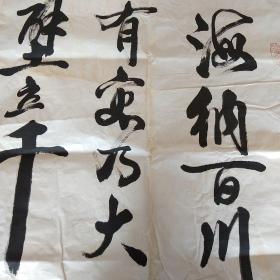 海纳百川
有容乃大
壁立千